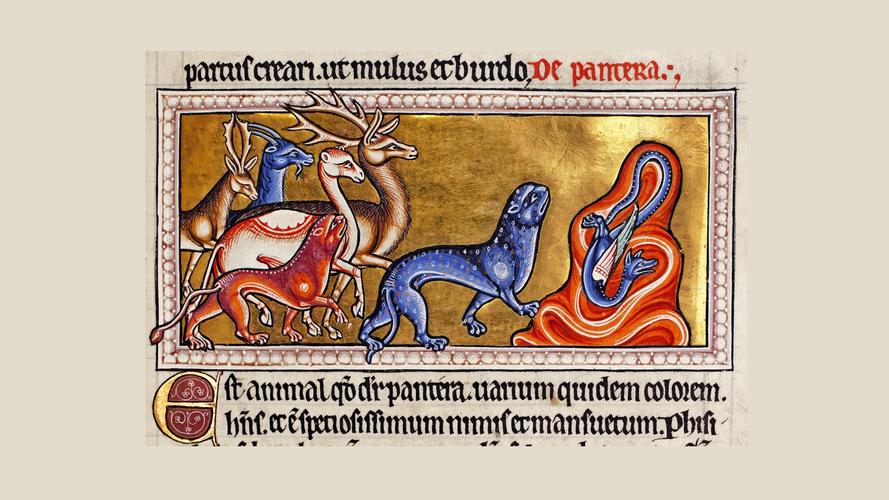 partus creari. ut mulus et burdo. De pantera.
Est animal qd̄ dr̄ pantera. uarium quidem colorem.
hn̄s. et ē speciosissimum nimis et mansuetum. Phisi